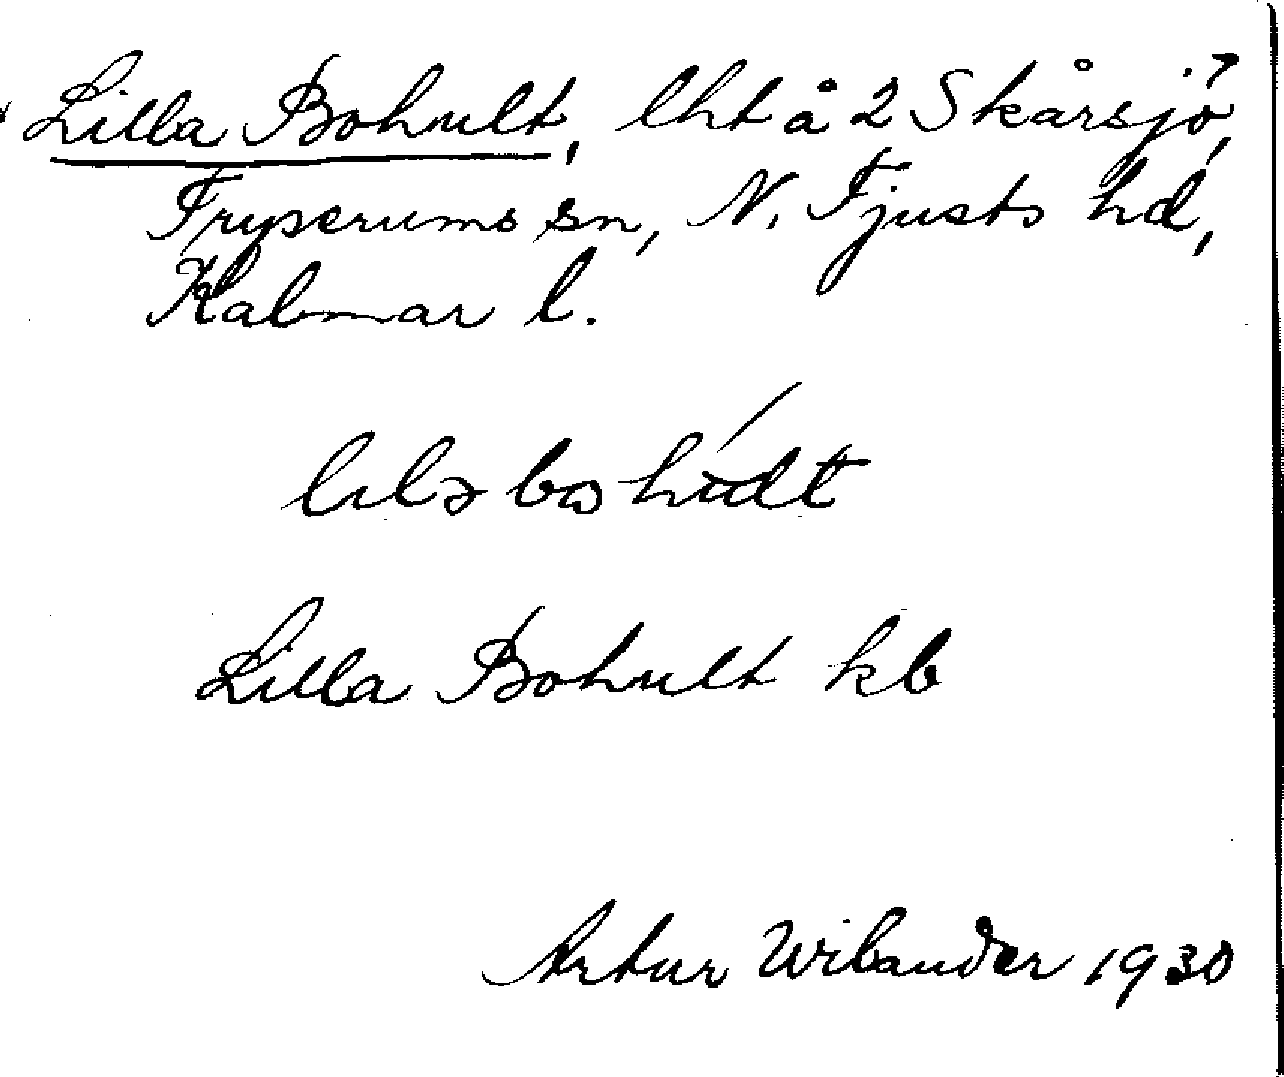 Lilla Bohult, lht å 2 Skårsjö,
Tryserums sn, N. Tjusts hd,
Kalmar l.
Lilla Bohult kb
Artur Wilander 1930